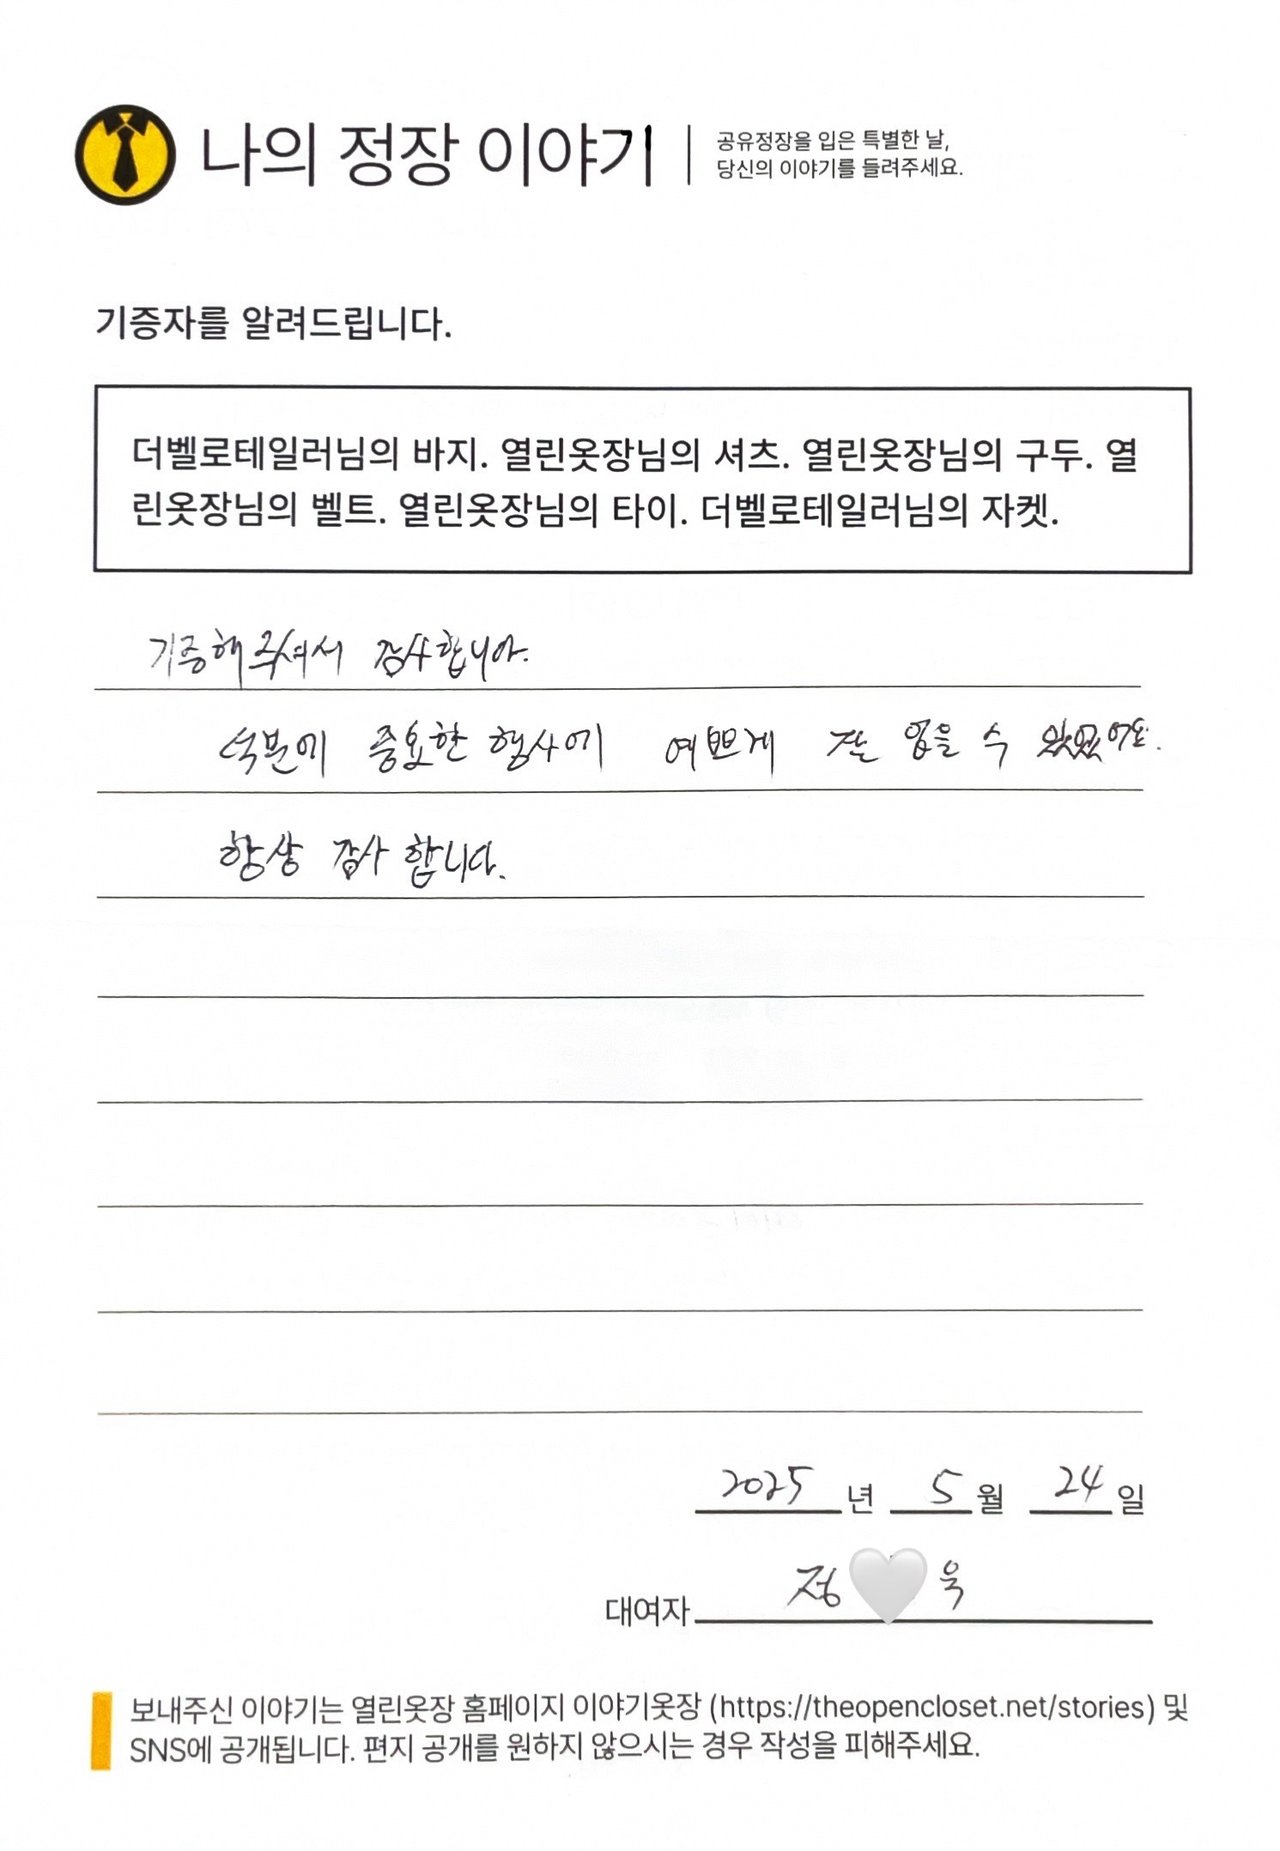 나의 정장 이야기
공유정장을 입은 특별한 날,
당신의 이야기를 들려주세요.
기증자를 알려드립니다.
더벨로테일러님의 바지. 열린옷장님의 셔츠. 열린옷장님의 구두. 열
린옷장님의 벨트. 열린옷장님의 타이. 더벨로테일러님의 자켓.
기증해주셔서 감사합니다.
덕분에 중요한 행사에 예쁘게 잘 입을 수 있었어요.
항상 감사합니다.
2025 년 5 월 24 일
대여자 정 욱
보내주신 이야기는 열린옷장 홈페이지 이야기옷장 (https://theopencloset.net/stories) 및
SNS에 공개됩니다. 편지 공개를 원하지 않으시는 경우 작성을 피해주세요.